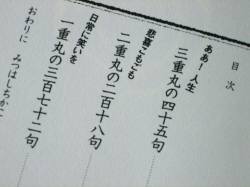 目次
ああ!人生
三重丸の四十五句
悲喜こもごも
二重丸の二百十八句
日常に笑いを
一重丸の三百七十二句
おわりに みつはしちかこ